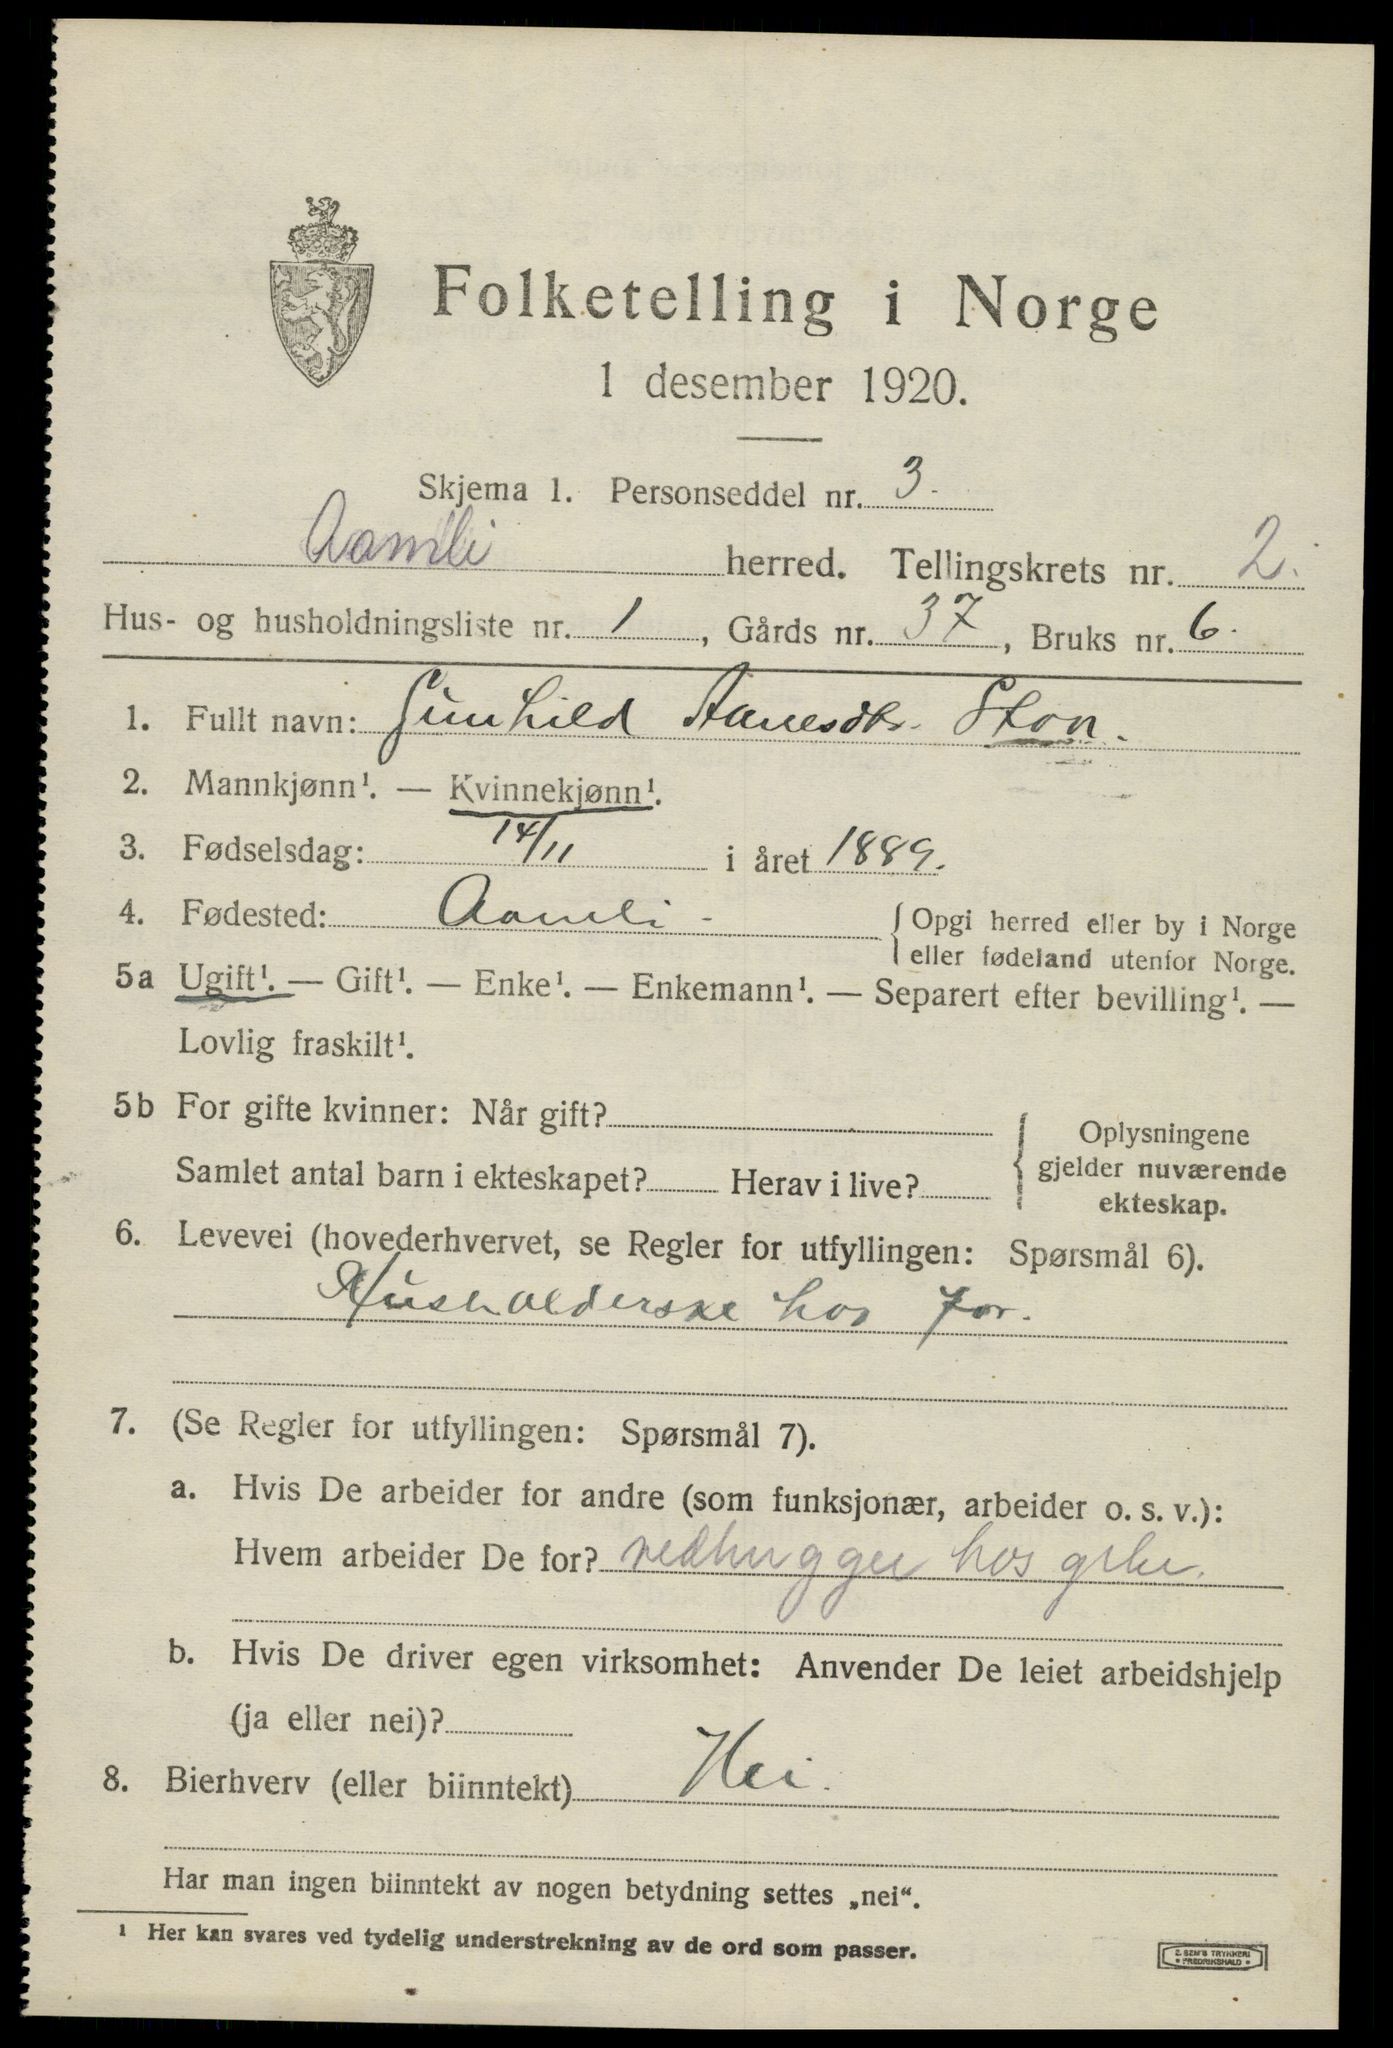 Folketelling i Norge
1 desember 1920.
Skjema 1. Personseddel nr. 3.
Aamli herred. Tellingskrets nr. 2.
Hus- og husholdningsliste nr. 1, Gårds nr. 37, Bruks nr. 6.
1. Fullt navn: Gunhild Aanesdtr. Ston.
2. Mannkjønn¹. — Kvinnekjønn¹.
3. Fødselsdag: 14/11 i året 1889.
4. Fødested: Aamli - { Opgi herred eller by i Norge
eller fødeland utenfor Norge.
5a Ugift¹. — Gift¹. — Enke¹. — Enkemann¹. — Separert efter bevilling¹. —
Lovlig fraskilt¹.
5b For gifte kvinner: Når gift?
Samlet antal barn i ekteskapet? Herav i live?
{ Oplysningene
gjelder nuværende
ekteskap.
6. Levevei (hovederhvervet, se Regler for utfyllingen: Spørsmål 6).
Husholderske hos far.
7. (Se Regler for utfyllingen: Spørsmål 7).
a. Hvis De arbeider for andre (som funksjonær, arbeider o. s. v.):
Hvem arbeider De for? vedhugger hos grbr.
b. Hvis De driver egen virksomhet: Anvender De leiet arbeidshjelp
(ja eller nei)?
8. Bierhverv (eller biinntekt) Nei.
Har man ingen biinntekt av nogen betydning settes „nei“.
¹ Her kan svares ved tydelig understrekning av de ord som passer.
E. SEM'S TRYKKERI
• FREDRIKSHALD •